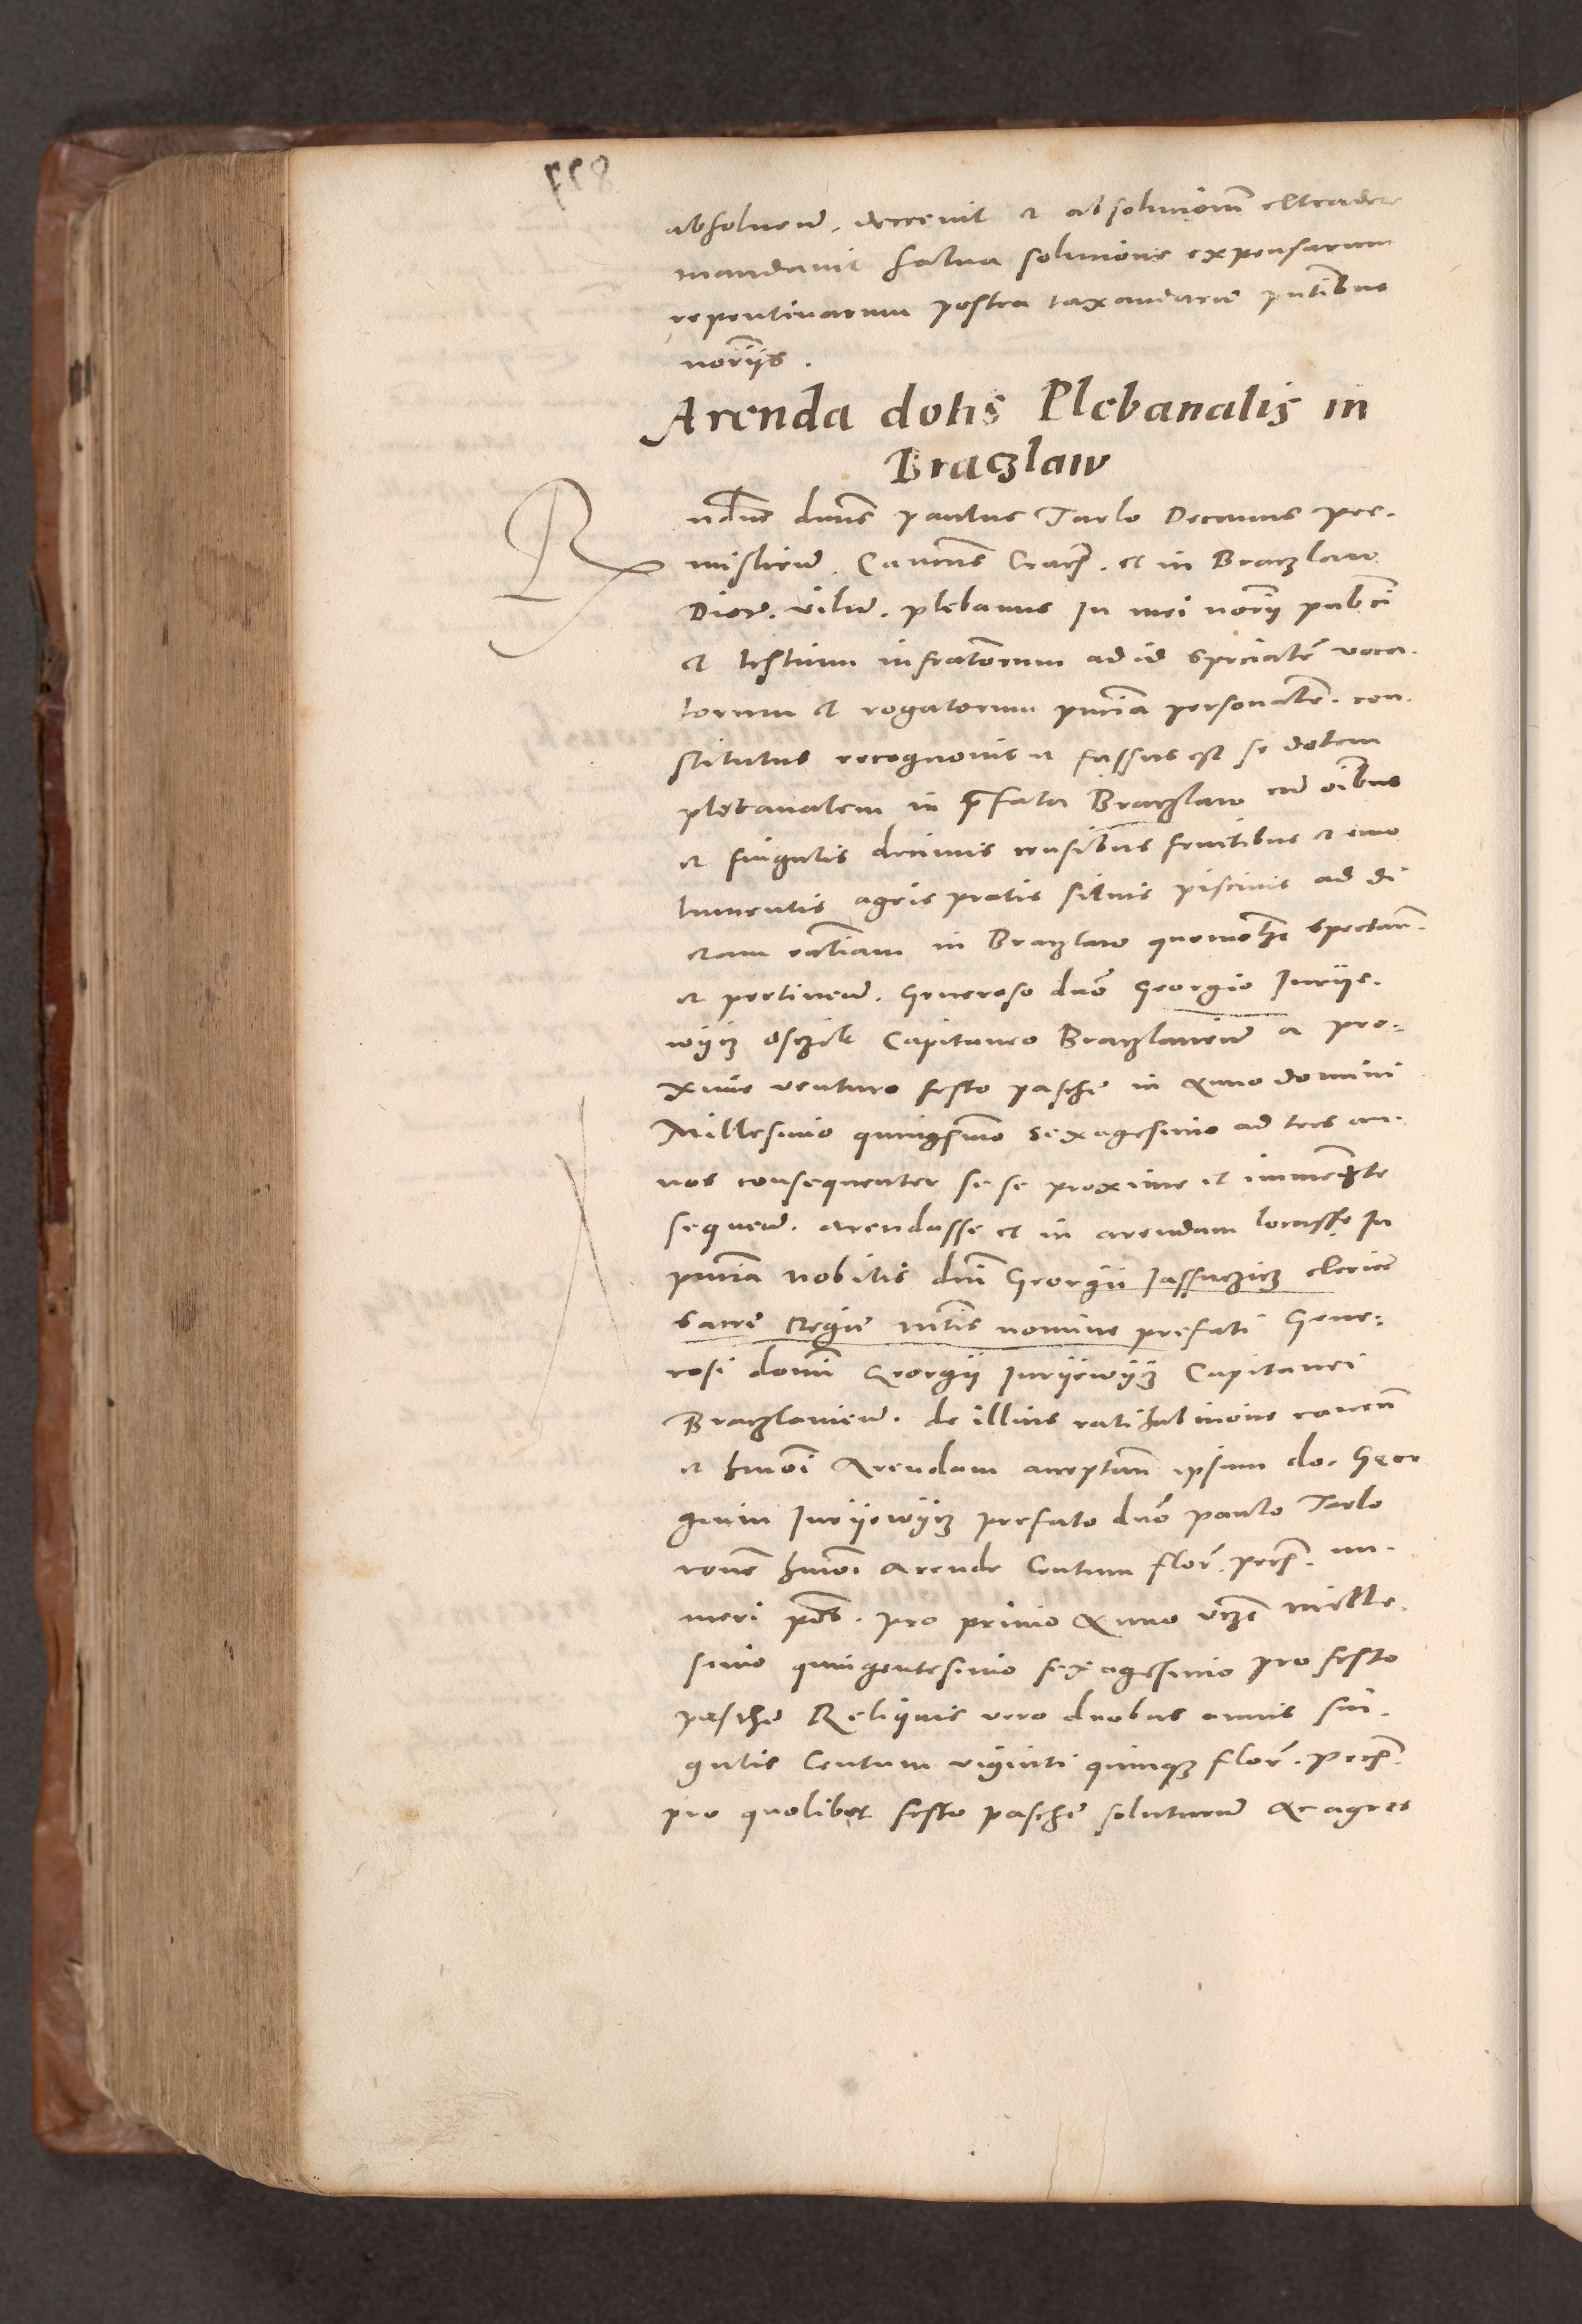 absoluen̄. decreuit et absolucionem extradere
mandauit salua solucione expensarum
repentinarum postea taxandarum pntibus
norijs.
Arenda dotis Plebanalis in
Braczlaw
Rndus dnus Paulus Tarlo Decanus Pre-
mislien̄. Canonicus Crac̄. et in Braczlaw
Dioc̄. viln̄. plebanus In mei norij publici
et testium infrascriptorum ad id specialit̄ voca-
torum et rogatorum pncia personalit̄. con-
stitutus recognouit et fassus est se dotem
plebanalem in prefata Braczlaw cum oibus
et singulis decimis censibus fructibus et emo
lumentis agris pratis siluis piscinis ad di
ctam ecc̄liam in Braczlaw quomolzt spectan̄.
et pertinen̄. Generoso dno Georgio Iurije-
wycz Osczik Capitaneo Braczlauien̄ a pro-
xime venturo festo pasche in Anno domini
Millesimo quingmo sexagesimo ad tres an-
nos consequenter se se proxime et immedte
sequen̄. arendasse et in arendam locasse In
pncia Nobilis dni Georgii Iassinczicz clerici
Sacre Regie mtis nomine prefati Gene-
rosi domini Georgij Iurijewycz Capitanei
Braczlauien̄. de illius ratihabicione cauen̄
et hmoi Arendam acceptan̄ ipsum do. Geor
gium Iurijewycz prefato dno Paulo Tarlo
racōne hmoi Arende Centum flor̄. pecc̄. nu-
meri pol. pro primo Anno vcz Mille-
simo quingentesimo sexagesimo pro festo
pasche Reliquis vero duobus annis sin-
gulis Centum viginti quinqz flor̄. pecc̄.
pro quolibet festo pasche soluturum Ac agros